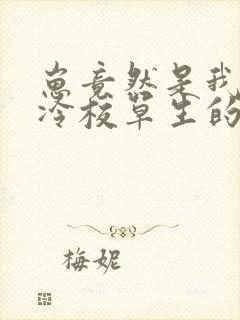 崽竟然是我
冷校草生的
梅妮